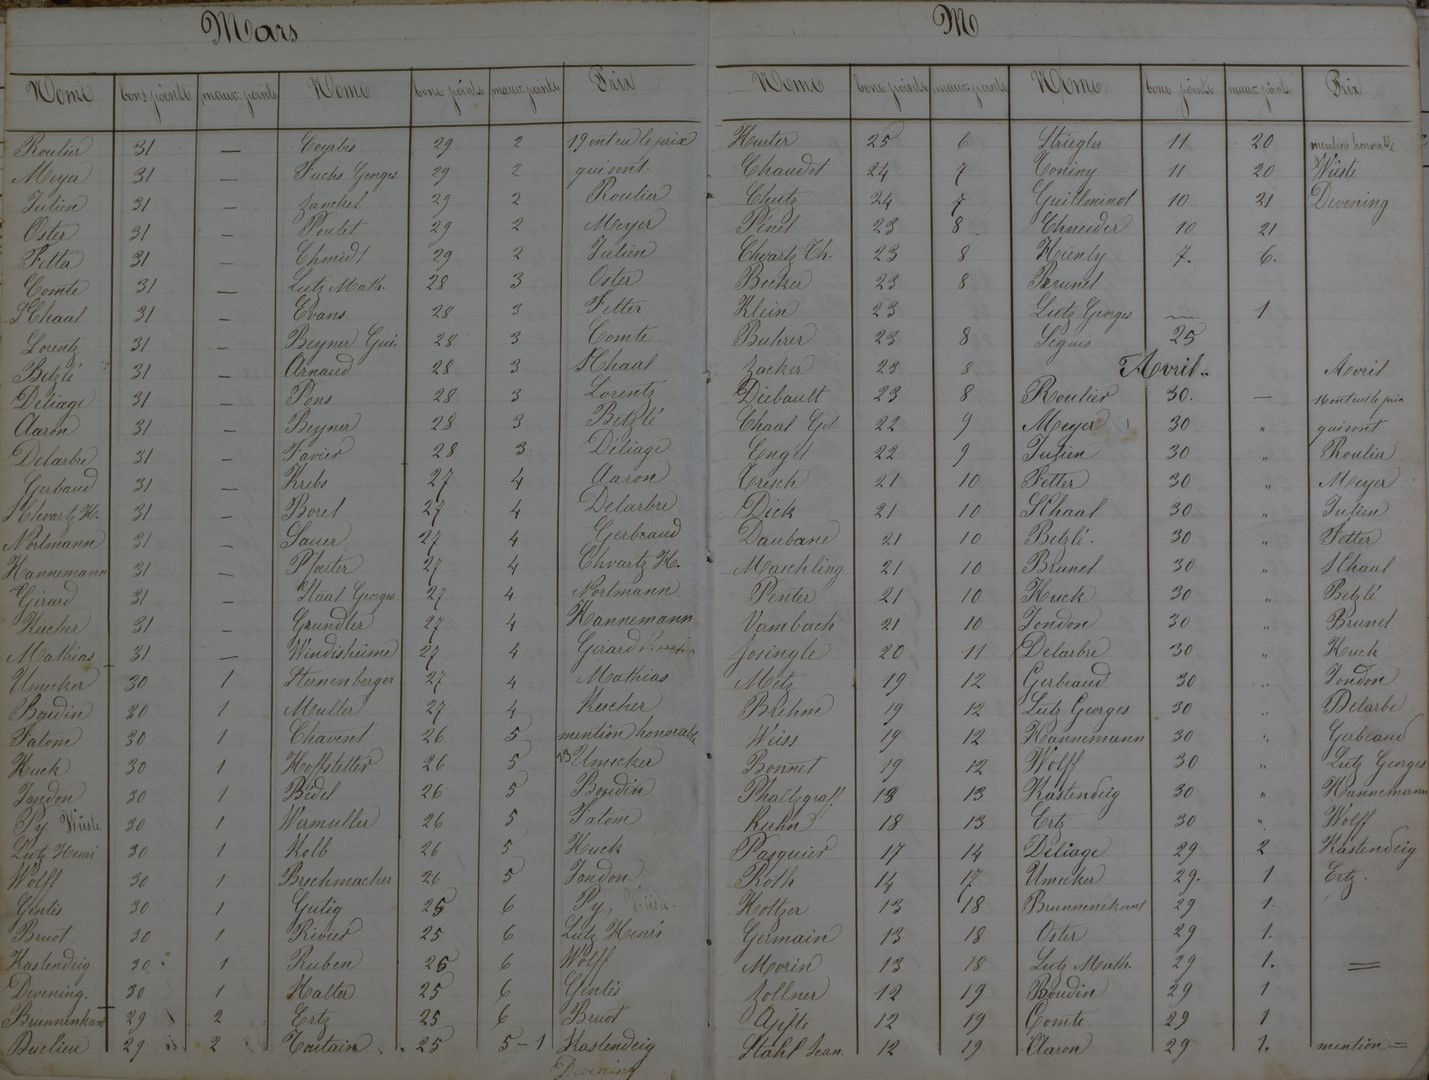 Mars
Noms bons points mauv. points Noms bons points mauv. points Prix
Roulier 31 — Coyrbis 29 2 19 ont eu le prix
Meyer 31 — Fuchs Georges 29 2 qui sont
Julien 31 — Zanchel 29 2 Roulier
Oster 31 — Poulet 29 2 Meyer
Fetta 31 — Chmidt 29 2 Julien
Comte 31 — Lutz Math. 28 3 Oster
SChaal 31 — Evans 28 3 Fetter
Lorentz 31 — Beyner Gui. 28 3 Comte
Betzlé 31 — Arnaud 28 3 SChaal
Déliage 31 — Pons 28 3 Lorentz
Aaron 31 — Beyner 28 3 Betzlé
Delarbre 31 — Favier 28 3 Déliage
Gerbaud 31 — Krebs 27 4 Aaron
SChvartz H. 31 — Borel 27 4 Delarbre
Nortmann 31 — Sauer 27 4 Gerbeaud
Hannemann 31 — Pfister 27 4 Chvartz H.
Girard 31 — Haal Georges 27 4 Nortmann
Kucher 31 — Grundler 27 4 Hannemann
Mathias 31 — Windisheime 27 4 Girard
Umecker 30 1 Sternenberger 27 4 Mathias
Boudin 30 1 Muller 27 4 Kucher
Fatome 30 1 Chavent 26 5 mention honorable
Huck 30 1 Hoffstetter 26 5 Umecker
Jondon 30 1 Bidel 26 5 Boudin
Py Wüste 30 1 Wermuller 26 5 Fatom
Lutz Henri 30 1 Kolb 26 5 Huck
Wolff 30 1 Brechmacher 26 5 Jondon
Genlis 30 1 Gutig 25 6 Py,
Bruot 30 1 Rivier 25 6 Lutz Henri
Kastendeig 30 1 Ruben 25 6 Wolff
Devening. 30 1 Halter 25 6 Genlis
Brunnenkant 29 2 Ertz 25 6 Bruot
Duelieu 29 2 Toutain 25 5-1 Kastendeig
Devening
M
Noms bons points mauv. points Noms bons points mauv. points Prix
Hurter 25 6 Striegler 11 20 mention honorable
Chaudet 24 7 Toniny 11 20 Wüste
Chutz 24 7 Guillminot 10 21 Devening
Pénet 23 8 Chneider 10 21
Chvartz Ch. 23 8 Hienly 7. 6.
Becker 23 8 Brunet
Klein 23 Lutz Georges — 1
Buhrer 23 8 Sigues 25
Zacker 23 8 Avril.. Avril
Diebault 23 8 Roulier 30. — ont eu le prix
Chaal Got 22 9 Meyer 30 " qui sont
Engel 22 9 Julien 30 " Roulier
Crisch 21 10 Fetter 30 " Meyer
Dick 21 10 SChaal 30 " Julien
Daubané 21 10 Betzlé. 30 " Fetter
Maechling 21 10 Brunet 30 " SChaal
Penter 21 10 Huck 30 " Betzlé
Vambach 21 10 Jondon 30 " Brunet
Josingle 20 11 Delarbre 30 " Huck
Metz 19 12 Gerbeaud 30 " Jondon
Brehm 19 12 Lutz Georges 30 " Delarbe
Weiss 19 12 Hannemann 30 " Gerbeaud
Bonnet 19 12 Wolff 30 " Lutz Georges
Phaltzgraff 18 13 Kastendeig 30 " Hannemann
Kuhn 18 13 Ertz 30 " Wolff
Pasquier 17 14 Déliage 29 2 Kastendeig
Roth 14 17 Umecker 29. 1 Ertz.
Holtzer 13 18 Brunnenkant 29 1
Germain 13 18 Oster 29 1.
Morin 13 18 Lutz Math. 29 1. =
Zollner 12 19 Boudin 29 1
Agifte 12 19 Comte 29 1
Stahl Jean. 12 19 Aaron 29 1. mention =